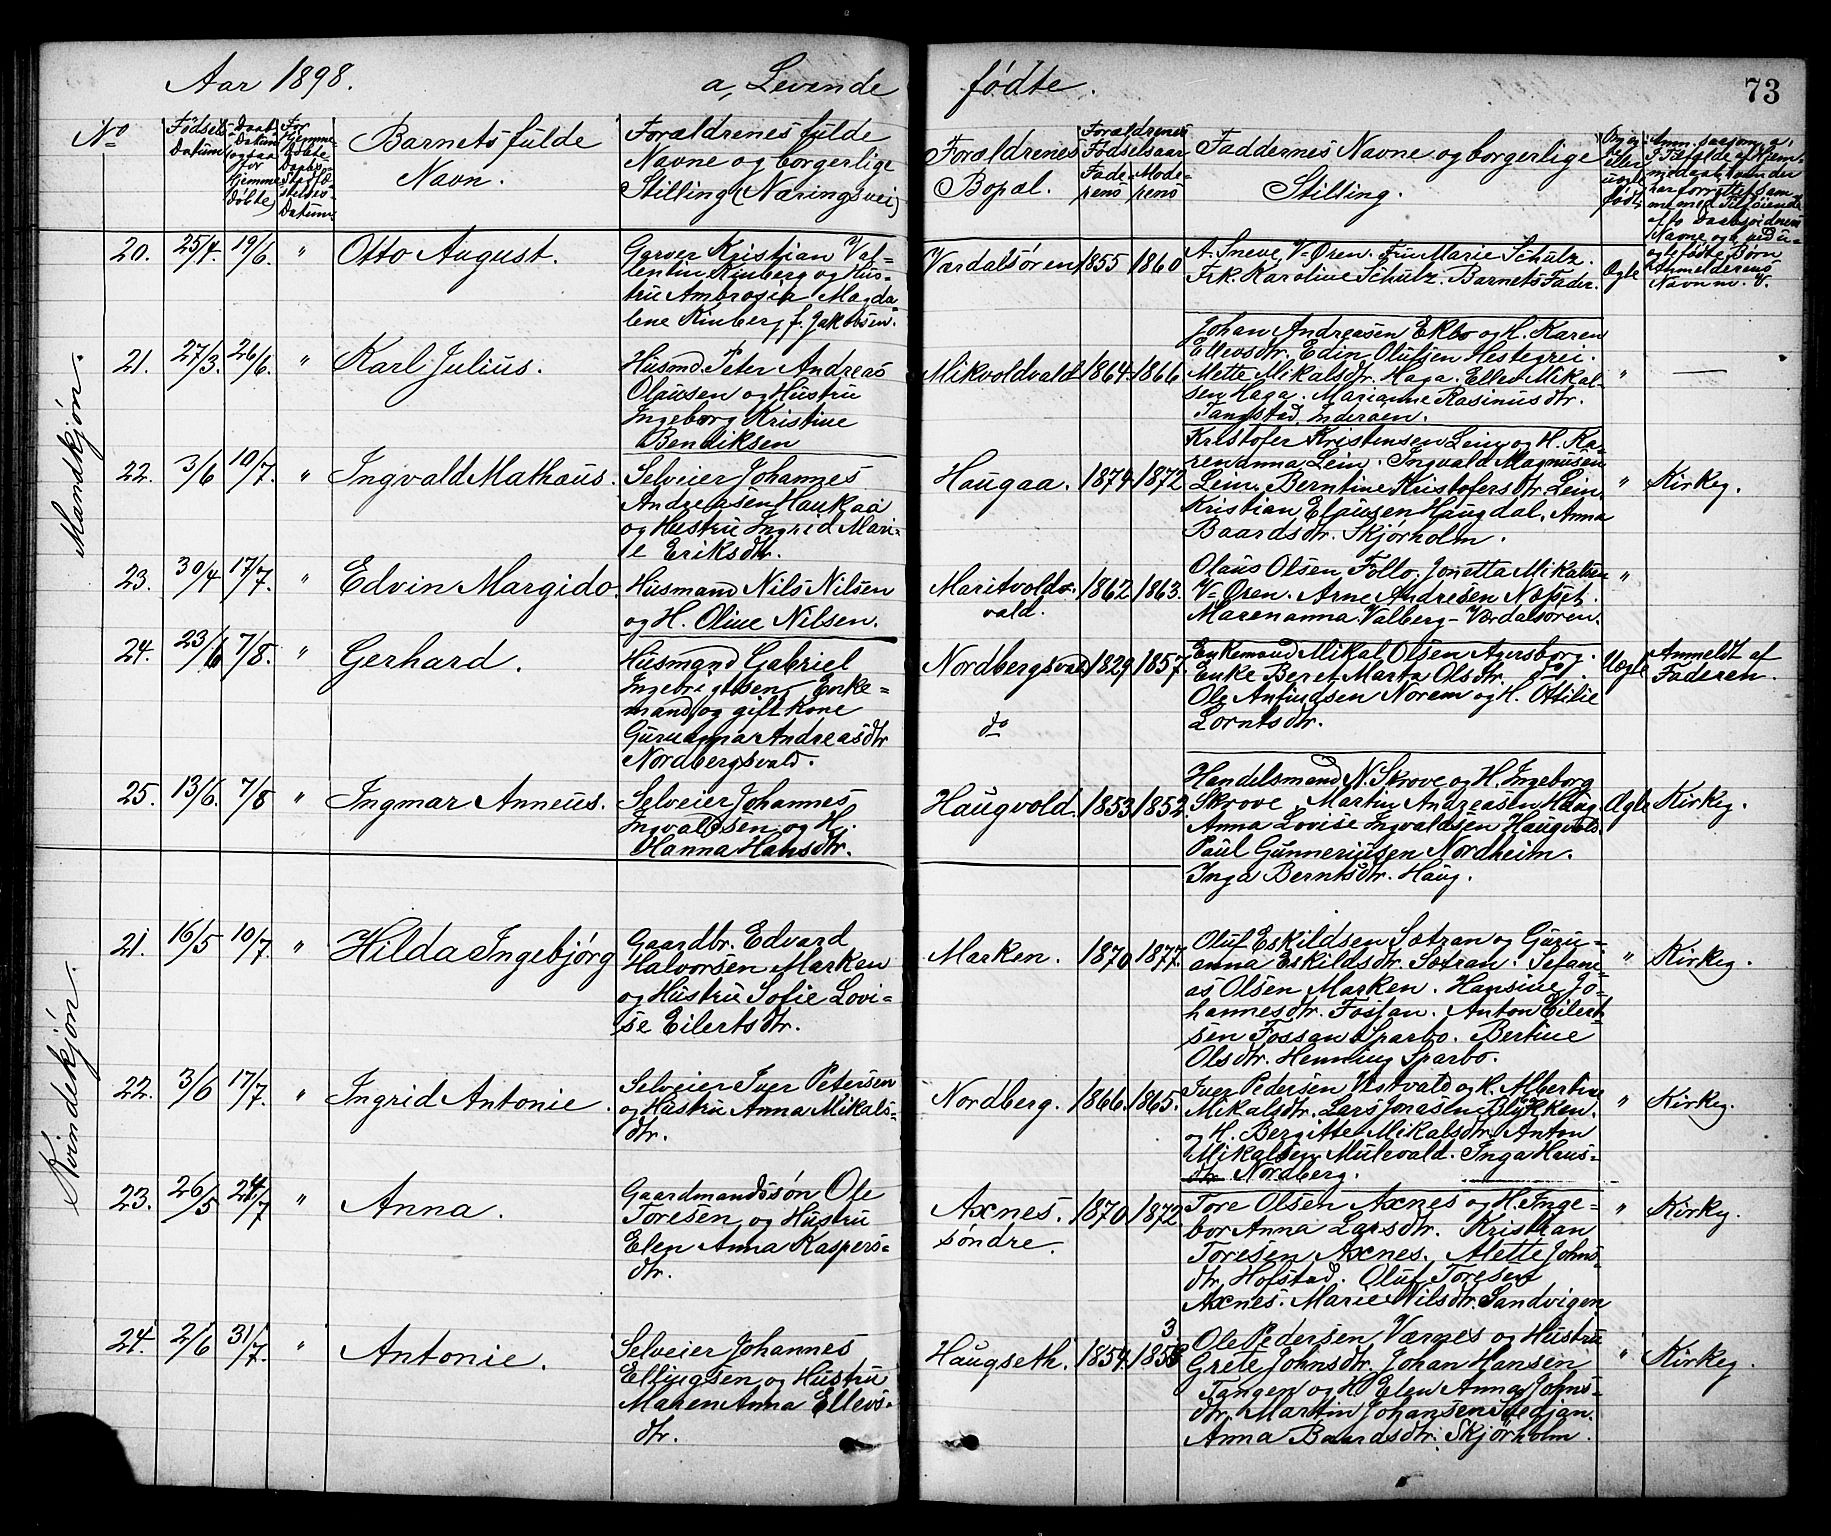 Aar 1898. a, Levende fødte. 73
No
Fødsels-
Datum
Daabs-
Datum
(ogsaa
for
Hjemme-
døbte)
For
Hjemme-
døbte
Daabs-
Stadfæ-
stelses-
Datum
Barnets fulde
Navn.
Forældrenes fulde
Navne og borgerlige
Stilling (Næringsvei)
Forældrenes
Bopæl.
Forældrenes
Fødselsaar
Fade-
rens
Mode-
rens
Faddernes Navne og borgerlige
Stilling.
Om æg-
te
eller
uægte
født
Mandkjøn.
20. 25/4. 19/6. " Otto August.
Garver Kristian Val-
lentin Kinberg og Hus-
tru Ambrosia Magda-
lene Kinberg f. Jakobsen.
Værdalsøren 1855 1860
A. Sneve, V-Øren. Fru Marie Schulz.
Frk. Karoline Schulz. Barnets Fader.
Ægte
21. 27/3. 26/6. " Karl Julius.
Husmd. Peter Andreas
Olausen og Hustru
Ingeborg Kristine
Bendiksen
Mikvoldvald 1864 1866
Johan Andreasen Ekbo og H. Karen
Ellevsdtr. Edin Olufsen Hestegrei.
Mette Mikalsdtr. Haga. Ellev Mikal-
sen Haga. Marianne Rasinusdtr.
Tangstad, Inderøen.
" —
22. 3/6 10/7. " Ingvald Mathæus.
Selveier Johannes
Andreasen Haukaa
og Hustru Ingrid Mari-
e Eriksdtr.
Haugaa. 1874 1872
Kristofer Kristensen Lein og H. Ka-
renanna Lein. Ingvald Magnusen
Lein. Berntine Kristofersdtr. Lein.
Kristian Elausen Haugdal. Anna
Baardsdtr. Skjørholm.
" Kirkeg.
23. 30/4 17/7. " Edvin Margido.
Husmand Nils Nilsen
og H. Oline Nilsen.
Maritvolds-
vald. 1862 1863.
Olaus Olsen Follo. Jonetta Mikalsen
V-Øren. Arne Andresen Næsset.
Marenanna Valberg - Værdalsøren.
"
24. 23/6 7/8. " Gerhard.
Husmand Gabriel
Ingebrigtsen, Enke-
mand, og gift Kone
Guruanna Andreasdtr
Nordbergsvald.
Nordbergsvald 1829 1857.
do
Enkemand Mikal Olsen Agersborg.
Enke Beret Marta Olsdtr. do.
Ole Anfindsen Norem og H. Ottilie
Lorntsdtr.
Uægte Anmeldt af
Faderen.
25. 13/6. 7/8 " Ingmar Anneus.
Selveier Johannes
Ingvaldsen og H.
Hanna Hansdtr.
Haugvold. 1853 1852.
Handelsmand N. Skrove og H. Ingeborg
Skrove. Martin Andreasen Haug.
Anna Lovise Ingvaldsen Haugvold.
Paul Gunneriusen Nordheim.
Inga Berntsdtr. Haug.
Ægte Kirkeg.
Kvindekjøn.
21. 16/5 10/7. " Hilda Ingebjørg
Gaardbr. Edvard
Halvorsen Marken
og Hustru Sofie Lovi-
se Eilertsdtr.
Marken. 1870 1877.
Oluf Eskildsen Sætran og Guru-
anna Eskildsdtr. Sætran. Sefani-
as Olsen Marken. Hansine Jo-
hannesdtr. Fossan. Anton Eilert-
sen Fossan Sparbo. Bertine
Olsdtr. Henning Sparbo.
" Kirkeg.
22. 3/6 17/7. " Ingrid Antonie.
Selveier Iver Petersen
og Hustru Anna Mikals-
dtr.
Nordberg. 1866. 1865.
Iver Pedersen Vestvald og H. Albertine
Mikalsdtr. Lars Jonasen Blykken.
og H. Bergitte Mikalsdtr. Anton
Mikalsen Mulevald. Inga Hans-
dtr. Nordberg.
" Kirkeg.
23. 26/5 24/7 " Anna.
Gaardmandssøn Ole
Toresen og Hustru
Elen Anna Kaspers-
dtr.
Axnes.
søndre. 1870 1872
Tore Olsen Axnes og H. Inge-
bor Anna Larsdtr. Kristian
Toresen Axnes. Alette Johns-
dtr. Hofstad. Oluf Toresen
Axnes. Marie Nilsdtr. Sandvigen
" Kirkeg.
24. 2/6 31/7. " Antonie.
Selveier Johannes
Ellingsen og Hustru
Maren Anna Ellevs-
dtr.
Haugseth. 1859. 1853
Ole Pedersen Værnes og Hustru
Grete Johnsdtr. Johan Hansen
Tangen og H. Elen Anna Johns-
dtr. Martin Johansen Stedjan.
Anna Baardsdtr. Skjørholm.
" Kirkeg.